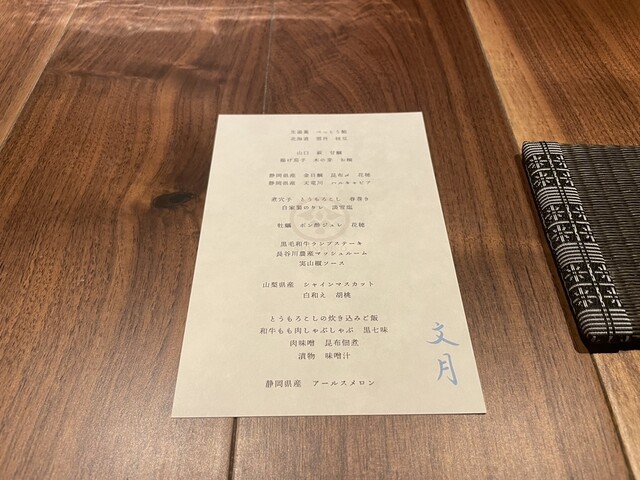 北海道 雲丹 枝豆
山口 萩 甘鯛
揚げ茄子
静岡県産 金目鯛 昆布〆 花穂
静岡県産 天竜川 ハルキャビア
煮穴子 とうもろこし 春巻き
自家製のカレー
牡蠣 ポン酢ジュレ 花穂
黒毛和牛ランプステーキ
長谷川農産マッシュルーム
実山椒ソース
山梨県産 シャインマスカット
白和え 胡桃
とうもろこしの炊き込みご飯
和牛もも肉しゃぶしゃぶ 黒七味
肉味噌 昆布佃煮
漬物 味噌汁
静岡県産 アールスメロン
文月